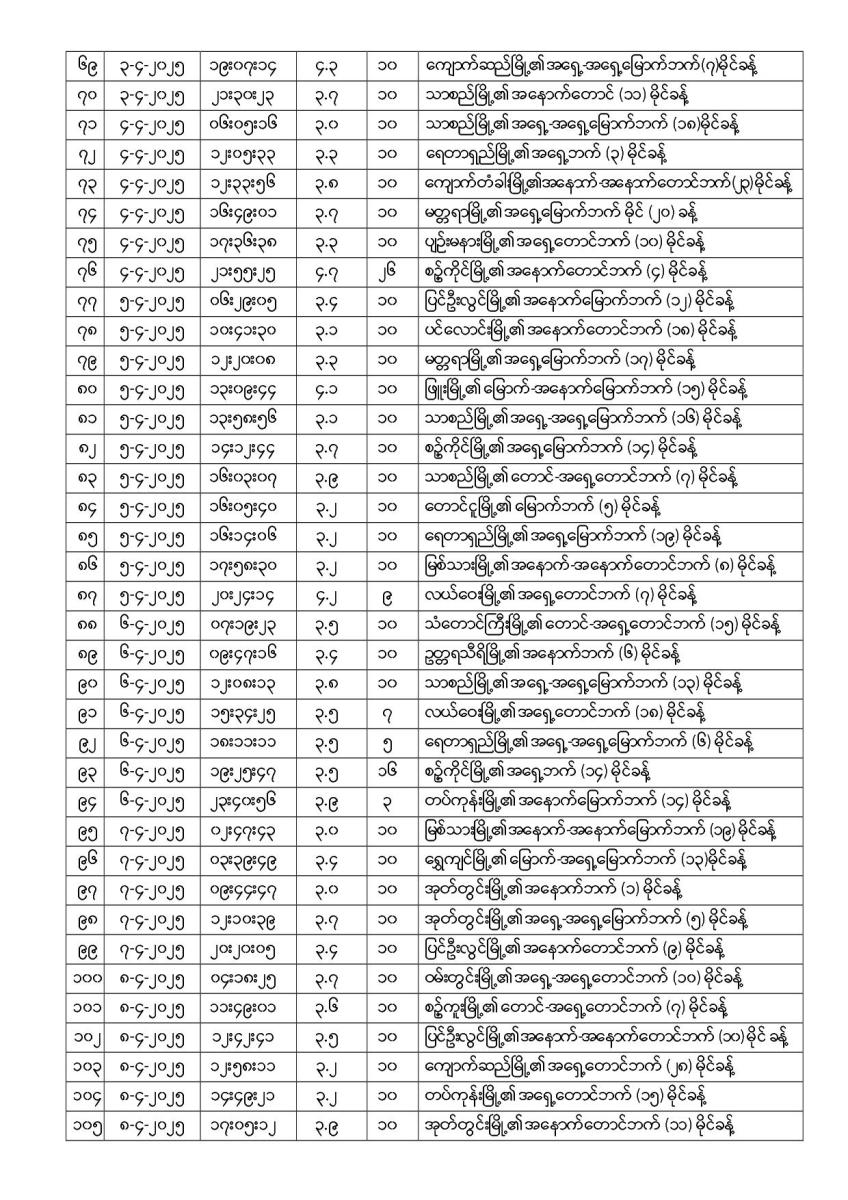 ၆၉ ၃-၄-၂၀၂၅ ၁၉း၀၇း၁၄ ၄.၃ ၁၀ ကျောက်ဆည်မြို့၏ အရှေ့-အရှေ့မြောက်ဘက်(၇)မိုင်ခန့်
၇၀ ၃-၄-၂၀၂၅ ၂၁း၃၀း၂၃ ၃.၇ ၁၀ သာစည်မြို့၏ အနောက်တောင် (၁၁) မိုင်ခန့်
၇၁ ၄-၄-၂၀၂၅ ၀၆း၀၅း၁၆ ၃.၀ ၁၀ သာစည်မြို့၏ အရှေ့-အရှေ့မြောက်ဘက် (၁၈)မိုင်ခန့်
၇၂ ၄-၄-၂၀၂၅ ၁၂း၀၅း၃၃ ၃.၃ ၁၀ ရေတာရှည်မြို့၏ အရှေ့ဘက် (၃) မိုင်ခန့်
၇၃ ၄-၄-၂၀၂၅ ၁၂း၃၃း၅၆ ၃.၈ ၁၀ ကျောက်တံခါးမြို့၏အနောက်-အနောက်တောင်ဘက်(၂၃)မိုင်ခန့်
၇၄ ၄-၄-၂၀၂၅ ၁၆း၄၉း၀၁ ၃.၇ ၁၀ မတ္တရာမြို့၏ အရှေ့မြောက်ဘက် မိုင် (၂၀) ခန့်
၇၅ ၄-၄-၂၀၂၅ ၁၇း၃၆း၃၈ ၃.၃ ၁၀ ပျဉ်းမနားမြို့၏ အရှေ့တောင်ဘက် (၁၀) မိုင်ခန့်
၇၆ ၄-၄-၂၀၂၅ ၂၁း၅၅း၂၅ ၄.၇ ၂၆ စဉ့်ကိုင်မြို့၏ အနောက်တောင်ဘက် (၄) မိုင်ခန့်
၇၇ ၅-၄-၂၀၂၅ ၀၆း၂၉း၀၅ ၃.၄ ၁၀ ပြင်ဦးလွင်မြို့၏ အနောက်မြောက်ဘက် (၁၂) မိုင်ခန့်
၇၈ ၅-၄-၂၀၂၅ ၁၀း၄၁း၃၀ ၃.၁ ၁၀ ပင်လောင်းမြို့၏ အနောက်တောင်ဘက် (၁၈) မိုင်ခန့်
၇၉ ၅-၄-၂၀၂၅ ၁၂း၂၀း၀၈ ၃.၃ ၁၀ မတ္တရာမြို့၏ အရှေ့မြောက်ဘက် (၁၇) မိုင်ခန့်
၈၀ ၅-၄-၂၀၂၅ ၁၃း၀၉း၄၄ ၄.၁ ၁၀ ဖြူးမြို့၏ မြောက်-အနောက်မြောက်ဘက် (၁၅) မိုင်ခန့်
၈၁ ၅-၄-၂၀၂၅ ၁၃း၅၈း၅၆ ၃.၁ ၁၀ သာစည်မြို့၏ အရှေ့-အရှေ့မြောက်ဘက် (၁၆) မိုင်ခန့်
၈၂ ၅-၄-၂၀၂၅ ၁၄း၁၂း၄၄ ၃.၇ ၁၀ စဉ့်ကိုင်မြို့၏ အရှေ့မြောက်ဘက် (၁၄) မိုင်ခန့်
၈၃ ၅-၄-၂၀၂၅ ၁၆း၀၃း၀၇ ၃.၉ ၁၀ သာစည်မြို့၏ တောင်-အရှေ့တောင်ဘက် (၇) မိုင်ခန့်
၈၄ ၅-၄-၂၀၂၅ ၁၆း၀၅း၄၀ ၃.၂ ၁၀ တောင်ငူမြို့၏ မြောက်ဘက် (၅) မိုင်ခန့်
၈၅ ၅-၄-၂၀၂၅ ၁၆း၁၄း၀၆ ၃.၂ ၁၀ ရေတာရှည်မြို့၏ အရှေ့မြောက်ဘက် (၁၉) မိုင်ခန့်
၈၆ ၅-၄-၂၀၂၅ ၁၇း၅၈း၃၀ ၃.၂ ၁၀ မြစ်သားမြို့၏ အနောက်-အနောက်တောင်ဘက် (၈) မိုင်ခန့်
၈၇ ၅-၄-၂၀၂၅ ၂၀း၂၄း၁၄ ၄.၂ ၉ လယ်ဝေးမြို့၏ အရှေ့တောင်ဘက် (၇) မိုင်ခန့်
၈၈ ၆-၄-၂၀၂၅ ၀၇း၁၉း၂၃ ၃.၅ ၁၀ သံတောင်ကြီးမြို့၏ တောင်-အရှေ့တောင်ဘက် (၁၅) မိုင်ခန့်
၈၉ ၆-၄-၂၀၂၅ ၀၉း၄၇း၁၆ ၃.၄ ၁၀ ဥတ္တရသီရိမြို့၏ အနောက်ဘက် (၆) မိုင်ခန့်
၉၀ ၆-၄-၂၀၂၅ ၁၂း၀၈း၁၃ ၃.၈ ၁၀ သာစည်မြို့၏ အရှေ့-အရှေ့မြောက်ဘက် (၁၃) မိုင်ခန့်
၉၁ ၆-၄-၂၀၂၅ ၁၅း၃၄း၂၅ ၃.၅ ၇ လယ်ဝေးမြို့၏ အရှေ့တောင်ဘက် (၁၈) မိုင်ခန့်
၉၂ ၆-၄-၂၀၂၅ ၁၈း၁၁း၁၁ ၃.၅ ၅ ရေတာရှည်မြို့၏ အရှေ့-အရှေ့မြောက်ဘက် (၆) မိုင်ခန့်
၉၃ ၆-၄-၂၀၂၅ ၁၉း၂၅း၄၇ ၃.၅ ၁၆ စဉ့်ကိုင်မြို့၏ အရှေ့ဘက် (၁၄) မိုင်ခန့်
၉၄ ၆-၄-၂၀၂၅ ၂၃း၄၀း၅၆ ၃.၉ ၃ တပ်ကုန်းမြို့၏ အနောက်မြောက်ဘက် (၁၄) မိုင်ခန့်
၉၅ ၇-၄-၂၀၂၅ ၀၂း၄၇း၄၃ ၃.၀ ၁၀ မြစ်သားမြို့၏ အနောက်-အနောက်မြောက်ဘက် (၁၉) မိုင်ခန့်
၉၆ ၇-၄-၂၀၂၅ ၀၃း၃၉း၄၉ ၃.၄ ၁၀ ရွှေကျင်မြို့၏ မြောက်-အရှေ့မြောက်ဘက် (၁၃)မိုင်ခန့်
၉၇ ၇-၄-၂၀၂၅ ၀၉း၄၄း၄၇ ၃.၀ ၁၀ အုတ်တွင်းမြို့၏ အနောက်ဘက် (၁) မိုင်ခန့်
၉၈ ၇-၄-၂၀၂၅ ၁၂း၁၀း၃၉ ၃.၇ ၁၀ အုတ်တွင်းမြို့၏ အရှေ့-အရှေ့မြောက်ဘက် (၅) မိုင်ခန့်
၉၉ ၇-၄-၂၀၂၅ ၂၀း၂၀း၀၅ ၃.၄ ၁၀ ပြင်ဦးလွင်မြို့၏ အနောက်တောင်ဘက် (၉) မိုင်ခန့်
၁၀၀ ၈-၄-၂၀၂၅ ၀၄း၁၈း၂၅ ၃.၇ ၁၀ ဝမ်းတွင်းမြို့၏ အရှေ့-အရှေ့တောင်ဘက် (၁၀) မိုင်ခန့်
၁၀၁ ၈-၄-၂၀၂၅ ၁၁း၄၉း၀၁ ၃.၆ ၁၀ စဉ့်ကူးမြို့၏ တောင်-အရှေ့တောင်ဘက် (၇) မိုင်ခန့်
၁၀၂ ၈-၄-၂၀၂၅ ၁၂း၄၂း၄၁ ၃.၅ ၁၀ ပြင်ဦးလွင်မြို့၏ အနောက်-အနောက်တောင်ဘက် (၁၀)မိုင် ခန့်
၁၀၃ ၈-၄-၂၀၂၅ ၁၂း၅၈း၁၁ ၃.၂ ၁၀ ကျောက်ဆည်မြို့၏ အရှေ့တောင်ဘက် (၂၈) မိုင်ခန့်
၁၀၄ ၈-၄-၂၀၂၅ ၁၄း၄၉း၂၁ ၃.၂ ၁၀ တပ်ကုန်းမြို့၏ အရှေ့တောင်ဘက် (၁၅) မိုင်ခန့်
၁၀၅ ၈-၄-၂၀၂၅ ၁၇း၀၅း၁၂ ၃.၉ ၁၀ အုတ်တွင်းမြို့၏ အနောက်တောင်ဘက် (၁၁) မိုင်ခန့်